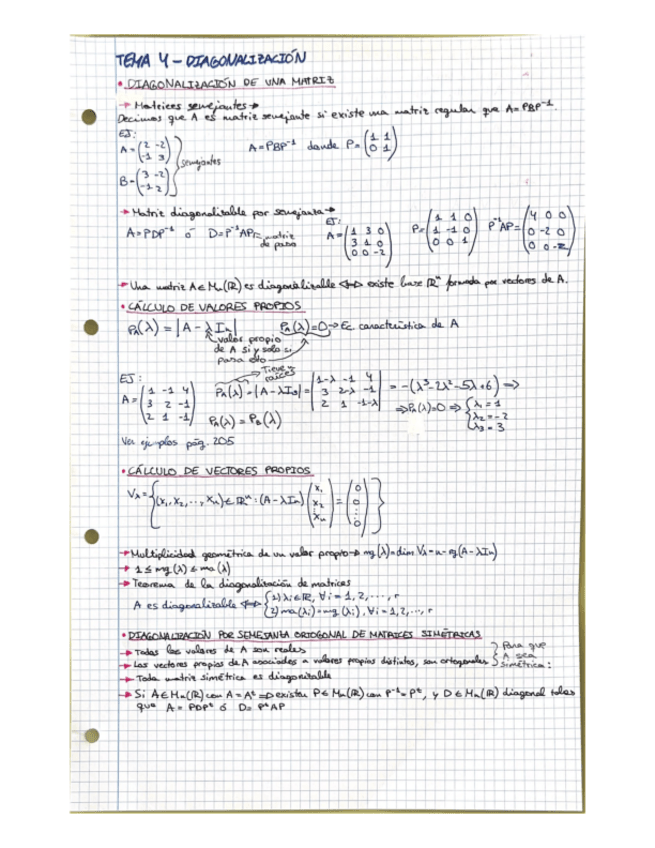 TEMA 4 - DIAGONALIZACIÓN
• DIAGONALIZACIÓN DE UNA MATRIZ
→ Matrices semejantes →
Decimos que A es matriz semejante si existe una matriz regular que A = PBP⁻¹.
EJ:
A = (2 -2 / -1 3) B = (3 -2 / -1 2) } semejantes A = PBP⁻¹ donde P = (1 1 / 0 1)
→ Matriz diagonalizable por semejanza →
A = PDP⁻¹ ó D = P⁻¹AP ← matriz de paso EJ: A = (1 3 0 / 3 1 0 / 0 0 -2) P = (1 1 0 / 1 -1 0 / 0 0 1) P⁻¹AP = (4 0 0 / 0 -2 0 / 0 0 -2)
→ Una matriz A ∈ Mn(R) es diagonalizable ⟺ existe base Rⁿ formada por vectores de A.
• CÁLCULO DE VALORES PROPIOS
PA(λ) = |A - λIn| PA(λ) = 0 → Ec. característica de A
valor propio
de A si y solo si
pasa esto
EJ: Tiene n raíces
A = (1 -1 4 / 3 2 -1 / 2 1 -1) PA(λ) = |A - λI3| = |1-λ -1 4 / 3 2-λ -1 / 2 1 -1-λ| = -(λ³ - 2λ² - 5λ + 6) ⇒
⇒ PA(λ) = 0 ⇒ { λ1 = 1 / λ2 = -2 / λ3 = 3
PA(λ) = PB(λ)
Ver ejemplos pág. 205
• CÁLCULO DE VECTORES PROPIOS
Vλ = {(x1, x2, ..., xn) ∈ Rⁿ : (A - λIn) (x1 / x2 / ⋮ / xn) = (0 / 0 / ⋮ / 0)}
→ Multiplicidad geométrica de un valor propio → mg(λ) = dim Vλ = n - rg(A - λIn)
→ 1 ≤ mg(λ) ≤ ma(λ)
→ Teorema de la diagonalización de matrices
A es diagonalizable ⟺ { 1) λi ∈ R, ∀i = 1, 2, ..., r / 2) ma(λi) = mg(λi), ∀i = 1, 2, ..., r
• DIAGONALIZACIÓN POR SEMEJANZA ORTOGONAL DE MATRICES SIMÉTRICAS
→ Todos los valores de A son reales
→ Los vectores propios de A asociados a valores propios distintos, son ortogonales } Para que A sea simétrica:
→ Toda matriz simétrica es diagonizable
→ Si A ∈ Mn(R) con A = Aᵗ ⇒ existen P ∈ Mn(R) con P⁻¹ = Pᵗ, y D ∈ Mn(R) diagonal tales
que A = PDPᵗ ó D = PᵗAP